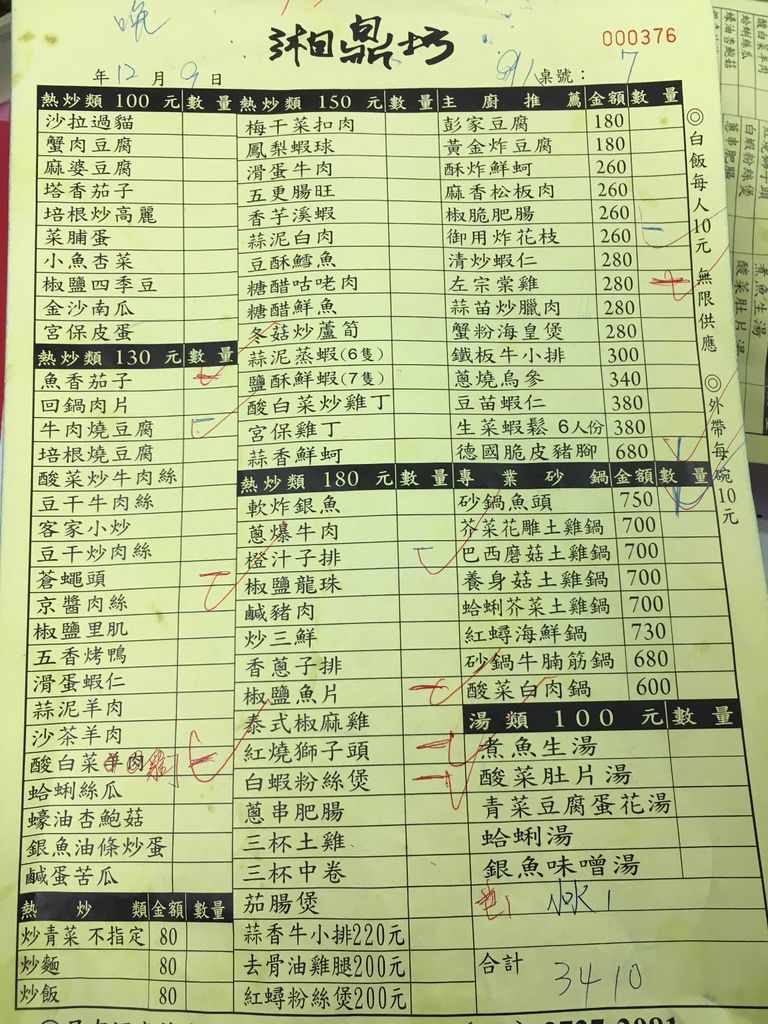 晚
湘鼎坊
000376
年12月9日
桌號：7
熱炒類 100 元 數量
沙拉過貓
蟹肉豆腐
麻婆豆腐
塔香茄子
培根炒高麗
菜脯蛋
小魚杏菜
椒鹽四季豆
金沙南瓜
宮保皮蛋
熱炒類 130 元 數量
魚香茄子
回鍋肉片
牛肉燒豆腐
培根燒豆腐
酸菜炒牛肉絲
豆干牛肉絲
客家小炒
豆干炒肉絲
蒼蠅頭
京醬肉絲
椒鹽里肌
五香烤鴨
滑蛋蝦仁
蒜泥羊肉
沙茶羊肉
酸白菜羊肉
蛤蜊絲瓜
蠔油杏鮑菇
銀魚油條炒蛋
鹹蛋苦瓜
熱炒類 金額 數量
炒青菜 不指定 80
炒麵 80
炒飯 80
熱炒類 150 元 數量
梅干菜扣肉
鳳梨蝦球
滑蛋牛肉
五更腸旺
香芋溪蝦
蒜泥白肉
豆酥鱈魚
糖醋咕咾肉
糖醋鮮魚
冬菇炒蘆筍
蒜泥蒸蝦(6隻)
鹽酥鮮蝦(7隻)
酸白菜炒雞丁
宮保雞丁
蒜香鮮蚵
熱炒類 180 元 數量
軟炸銀魚
蔥爆牛肉
橙汁子排
椒鹽龍珠
鹹豬肉
炒三鮮
香蔥子排
椒鹽魚片
泰式椒麻雞
紅燒獅子頭
白蝦粉絲煲
蔥串肥腸
三杯土雞
三杯中卷
茄腸煲
蒜香牛小排220元
去骨油雞腿200元
紅蟳粉絲煲200元
主廚推薦 金額 數量
彭家豆腐 180
黃金炸豆腐 180
酥炸鮮蚵 260
麻香松板肉 260
椒脆肥腸 260
御用炸花枝 260
清炒蝦仁 280
左宗棠雞 280
蒜苗炒臘肉 280
蟹粉海皇煲 280
鐵板牛小排 300
蔥燒烏參 340
豆苗蝦仁 380
生菜蝦鬆 6人份 380
德國脆皮豬腳 680
專業砂鍋 金額 數量
砂鍋魚頭 750
芥菜花雕土雞鍋 700
巴西蘑菇土雞鍋 700
養身菇土雞鍋 700
蛤蜊芥菜土雞鍋 700
紅蟳海鮮鍋 730
砂鍋牛腩筋鍋 680
酸菜白肉鍋 600
湯類 100 元 數量
煮魚生湯
酸菜肚片湯
青菜豆腐蛋花湯
蛤蜊湯
銀魚味噌湯
合計 3410
◎白飯每人10元 無限供應 ◎外帶每碗10元
酸白菜羊肉
蛤蜊絲瓜
蠔油杏鮑菇
紅燒獅子頭
白蝦粉絲煲
蔥串肥腸
煮魚生湯
酸菜肚片湯